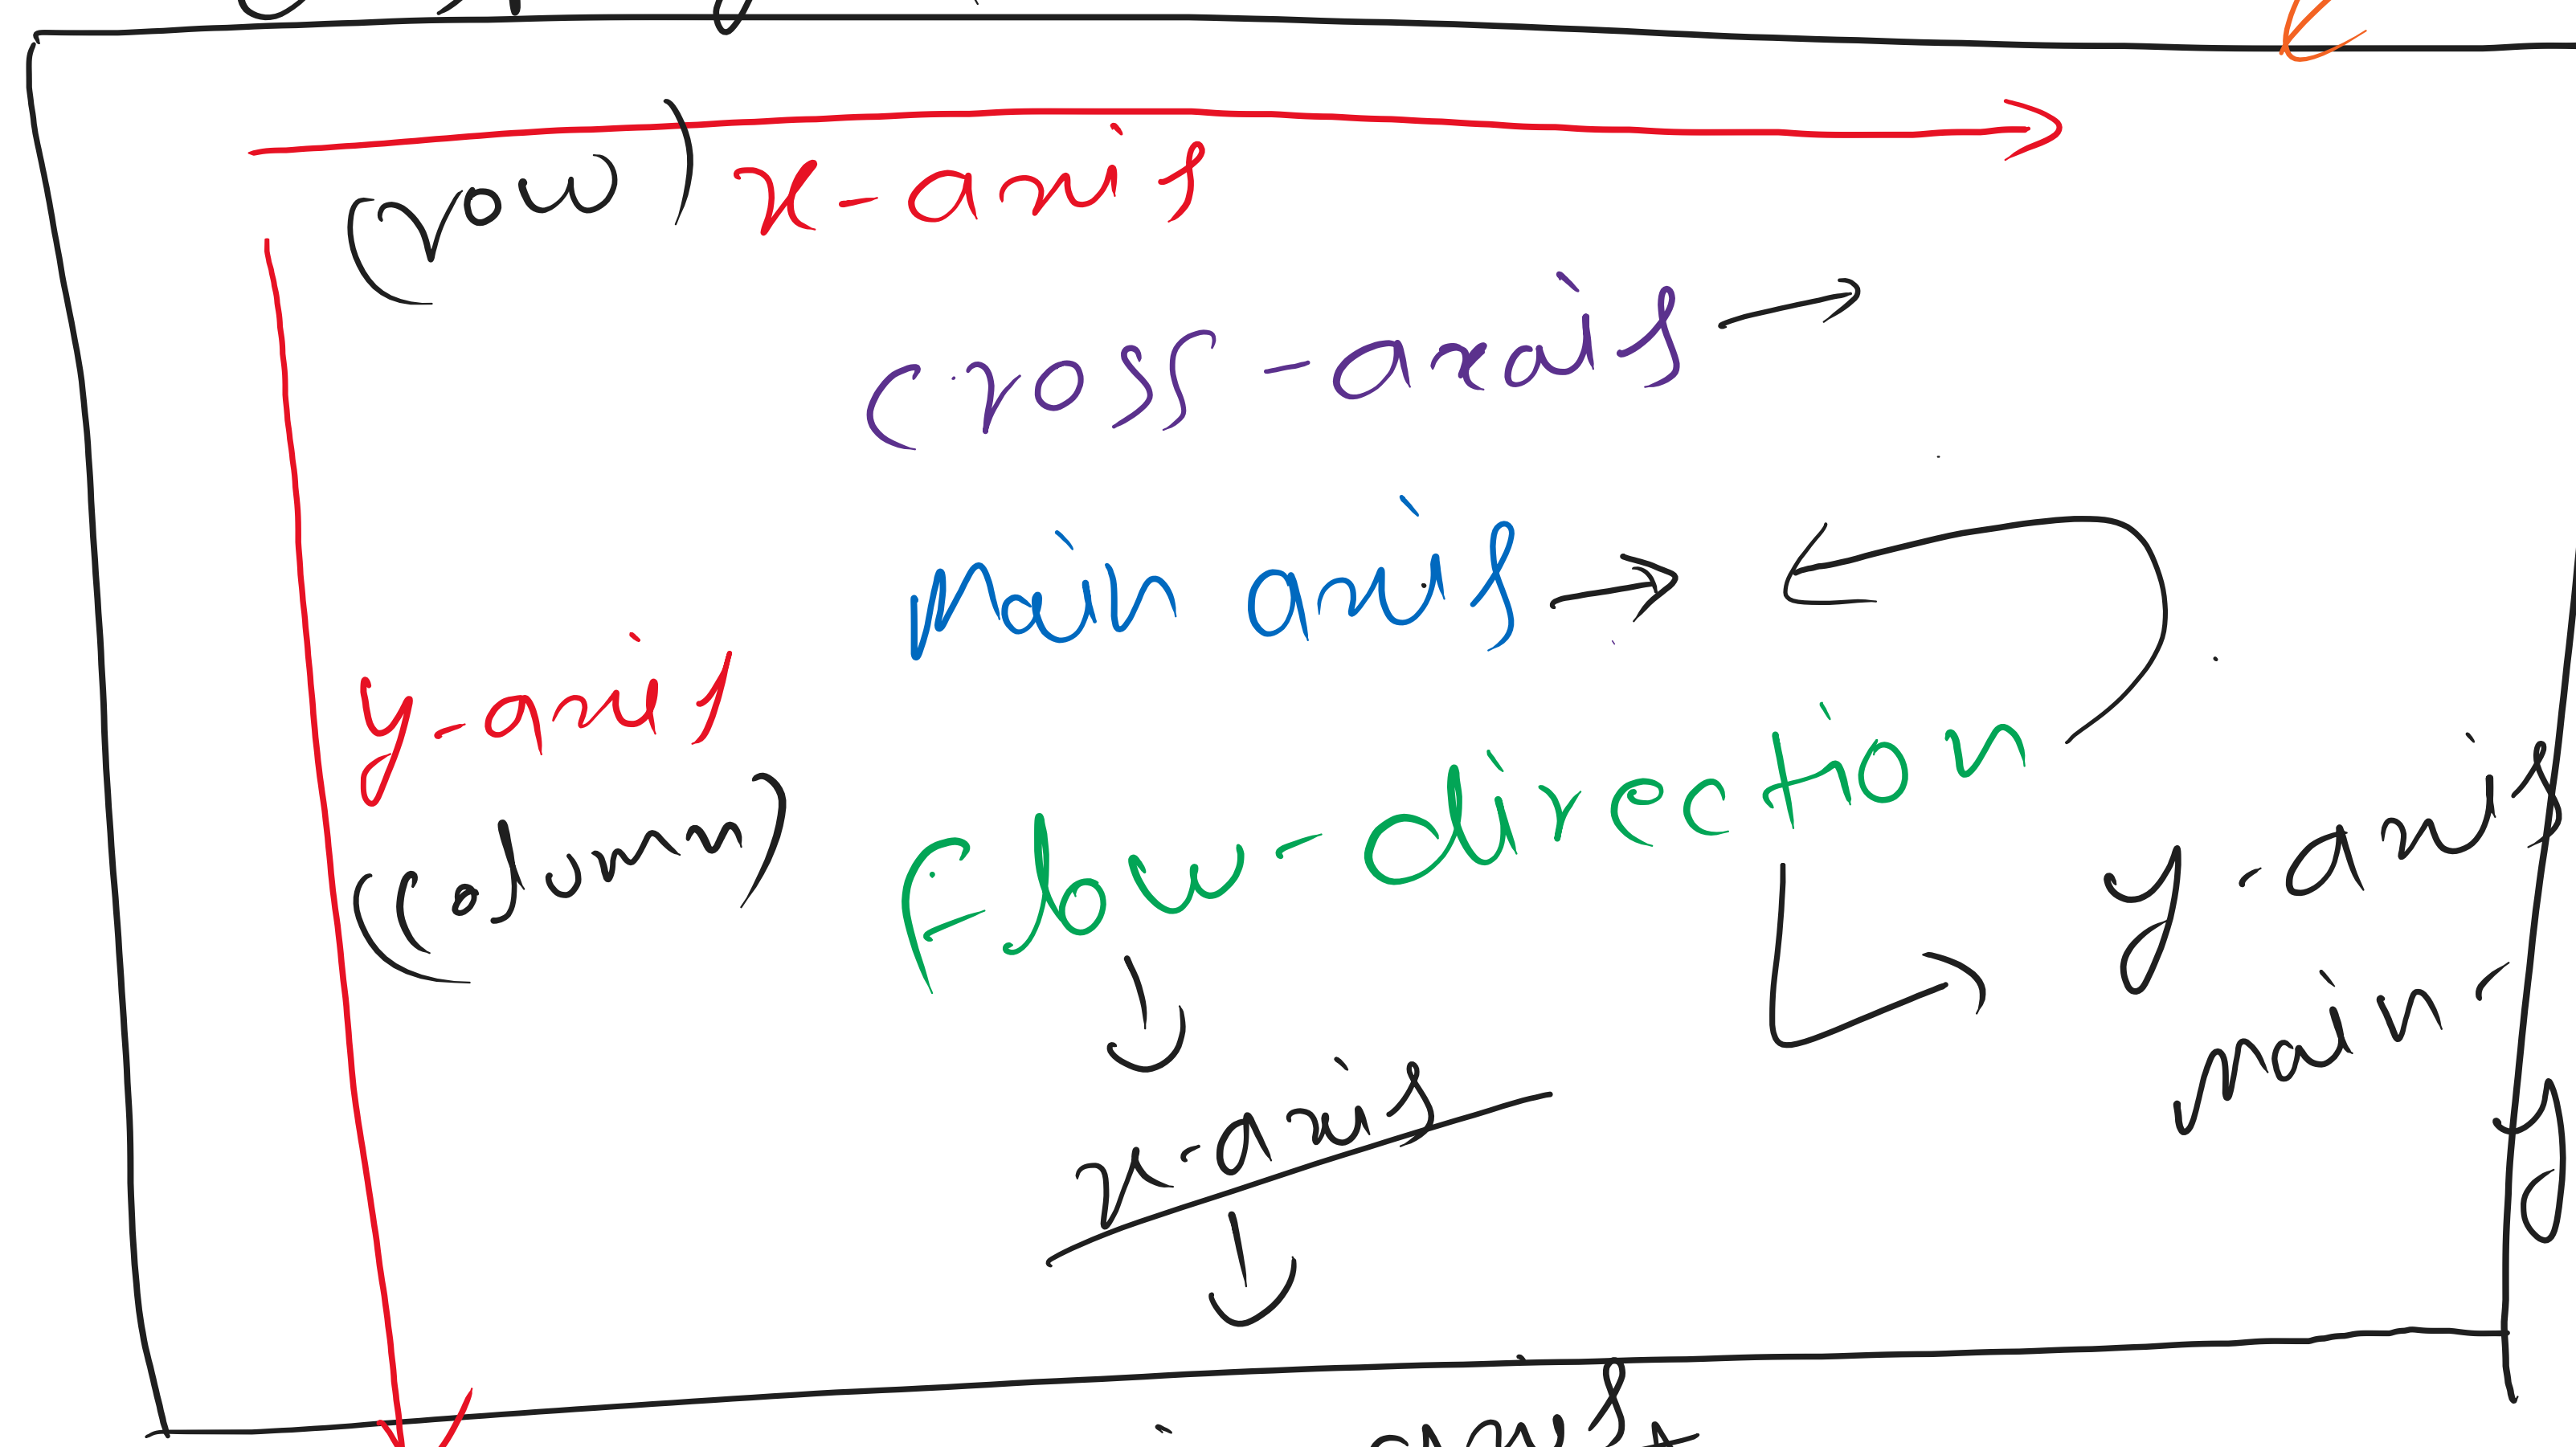 (row) x-axis
cross-axais →
Main axis →
y-axis
(column)
flow-direction
y-axis
main-
y
x-axis
axis